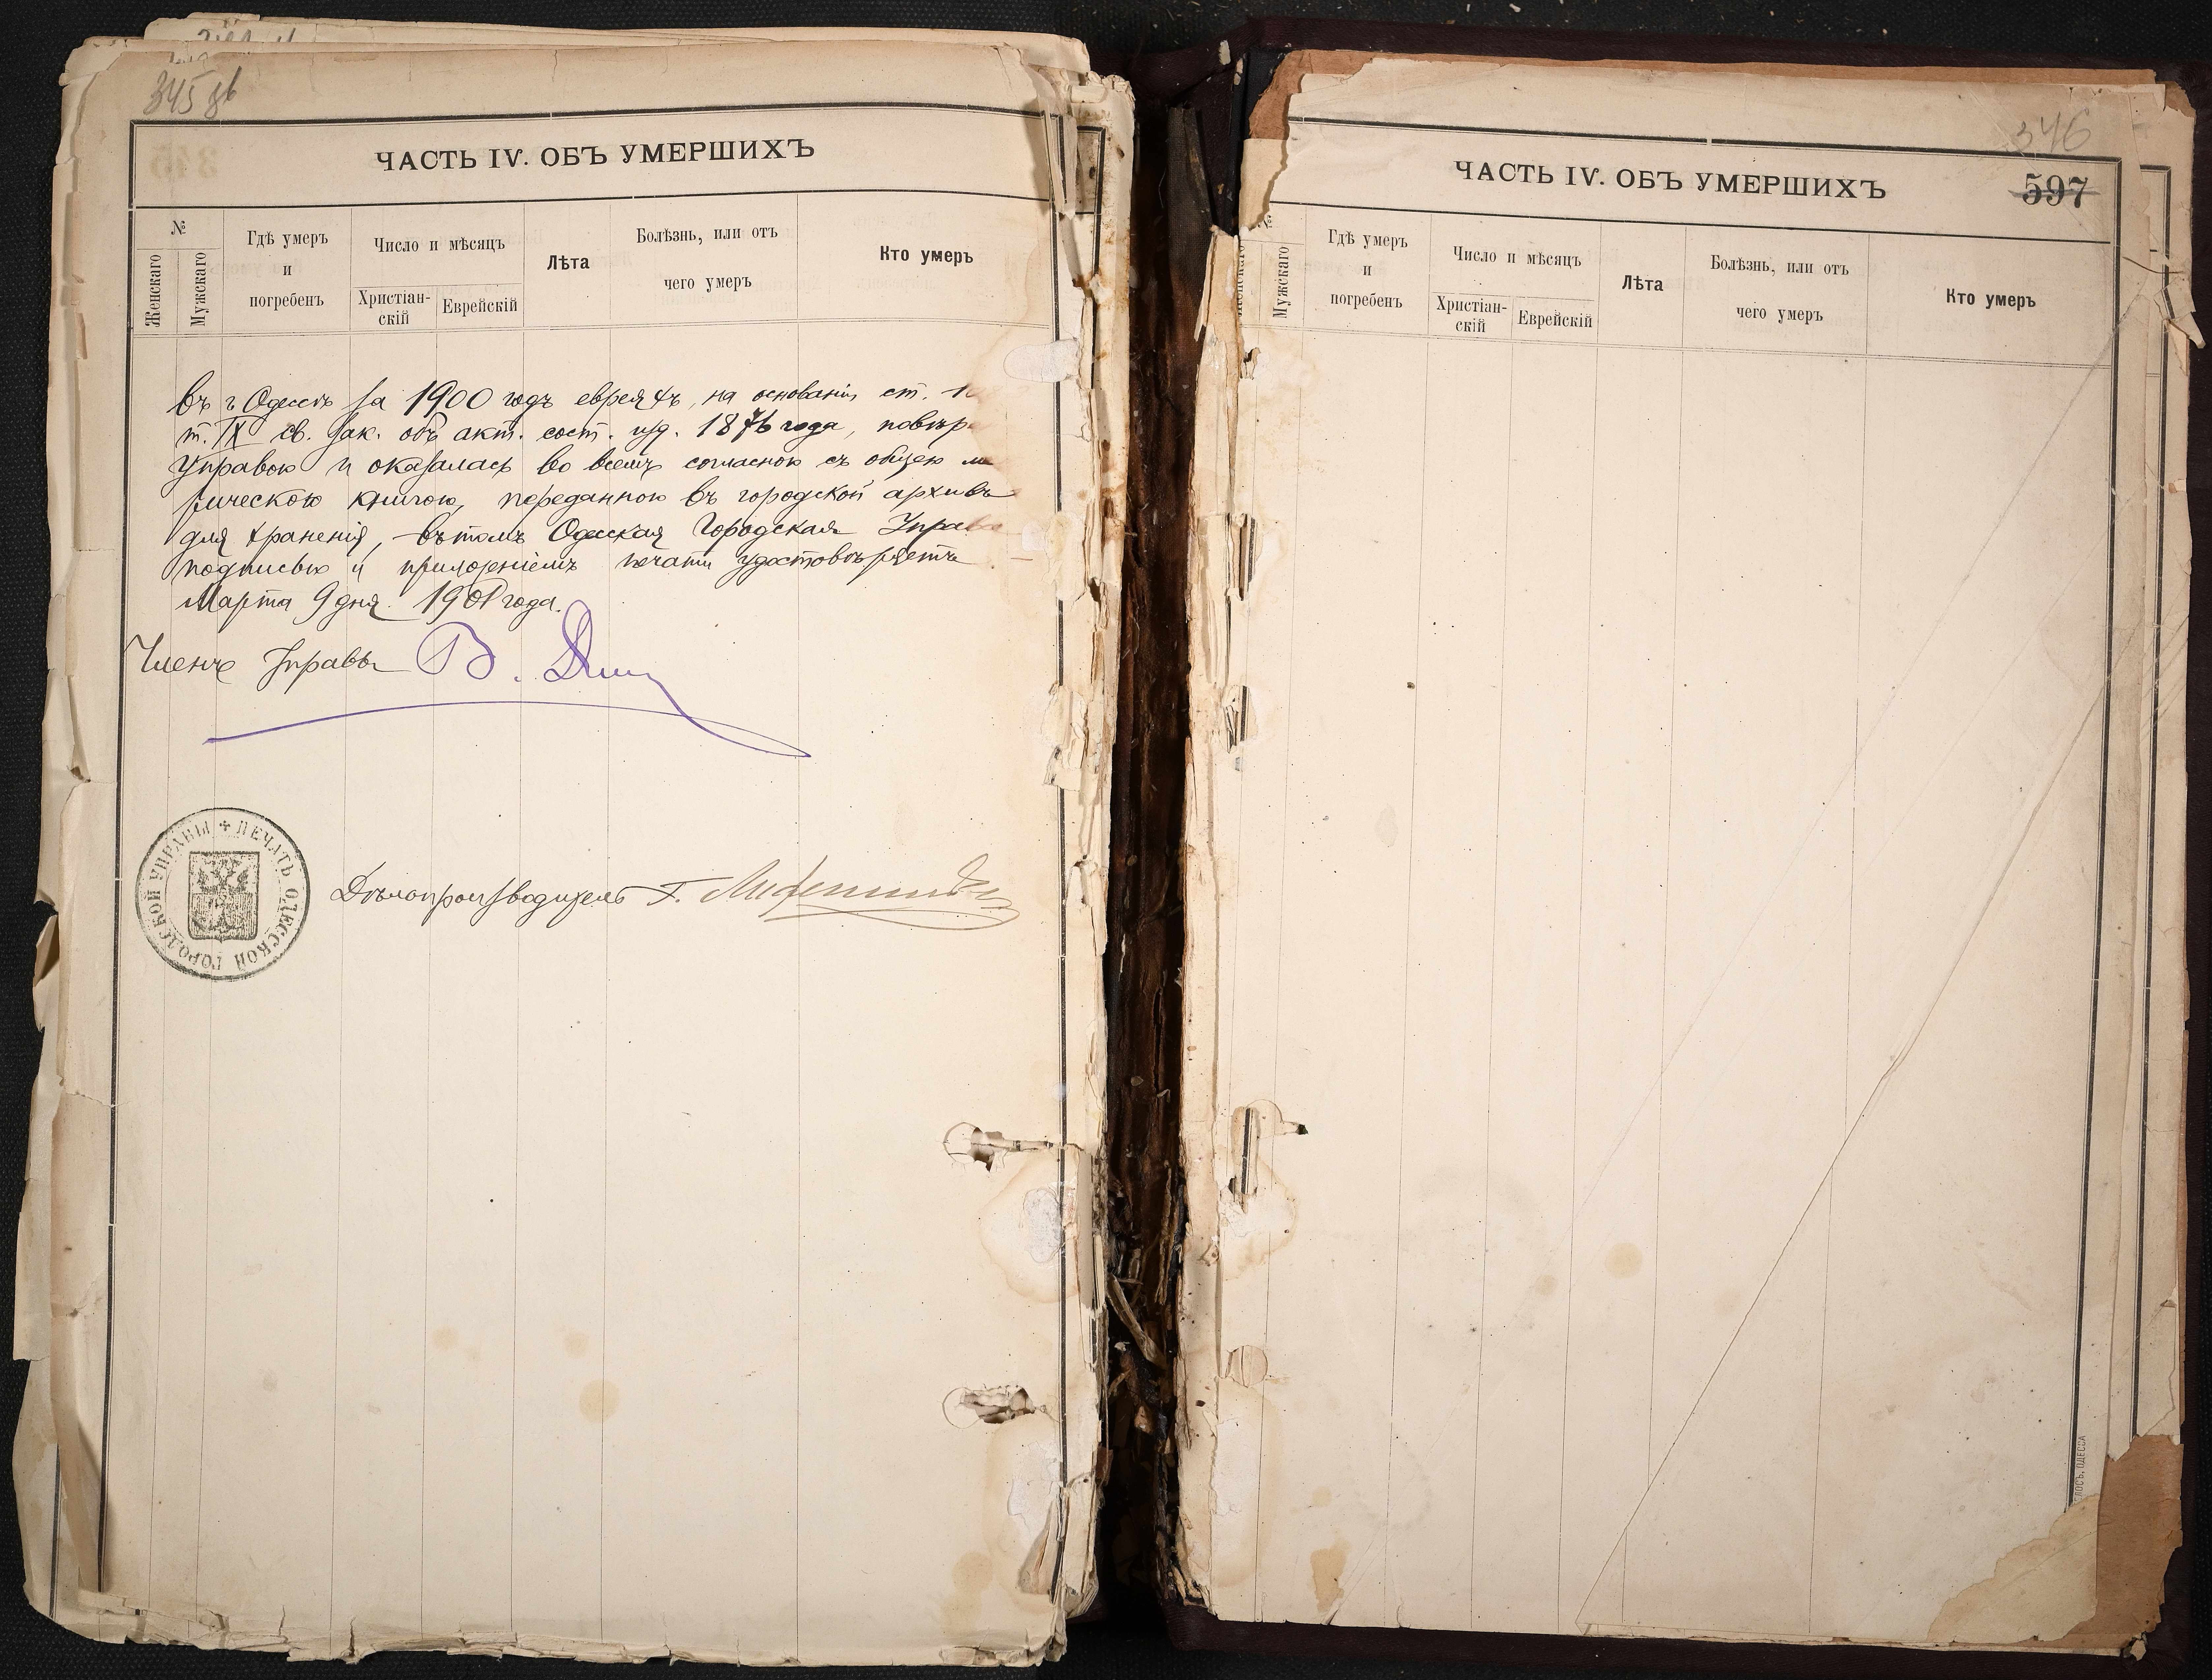 345 зв
ЧАСТЬ IV. ОБЪ УМЕРШИХЪ
№
Женскаго
Мужскаго
Гдѣ умеръ
и
погребенъ
Число и мѣсяцъ
Христіан-
скій
Еврейскій
Лѣта
Болѣзнь, или отъ
чего умеръ
Кто умеръ
въ г. Одессѣ за 1900 годъ евреяхъ, на основаніи ст.
т. IX св. Зак. объ акт. сост. изд. 1876 года,
Управою и оказалась во всемъ согласною съ общею
рическою книгою, переданною въ городской архивъ
для храненія, въ томъ Одесская Городская Управа
подписью и приложеніемъ печати удостовѣряетъ
Марта 9 дня 1901 года.
Членъ Управы В.
ПЕЧАТЬ ОДЕССКОЙ ГОРОДСКОЙ УПРАВЫ
Дѣлопроизводитель Г.
346
ЧАСТЬ IV. ОБЪ УМЕРШИХЪ
597
№
Женскаго
Мужскаго
Гдѣ умеръ
и
погребенъ
Число и мѣсяцъ
Христіан-
скій
Еврейскій
Лѣта
Болѣзнь, или отъ
чего умеръ
Кто умеръ
ОДЕССА